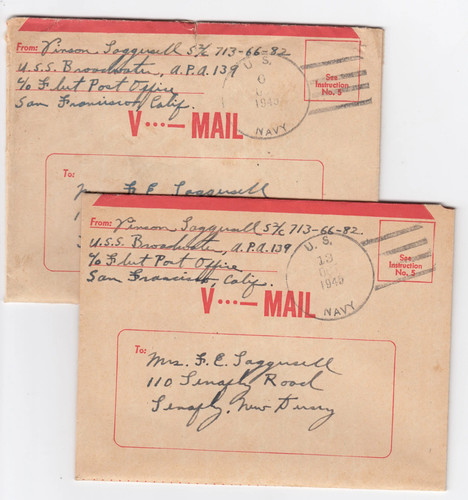 From: Vinson Saggusell S2/c 713-66-82
U.S.S. Broadwater, A.P.A. 139
c/o Fleet Post Office
San Francisco, Calif.
U. S.
1945
NAVY
See
Instruction
No. 5
V···— MAIL
To:
F. E. Saggusell
From: Vinson Saggusell S2/c 713-66-82.
U.S.S. Broadwater, A.P.A. 139
c/o Fleet Post Office
San Francisco, Calif.
U. S.
13
1945
NAVY
See
Instruction
No. 5
V···— MAIL
To:
Mrs. F. E. Saggusell
110 Tenafly Road
Tenafly, New Jersey